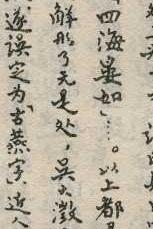 四海晏如」……。以上都
解形了无是处，吴大澂
遂誤定为“古燕字”，近人